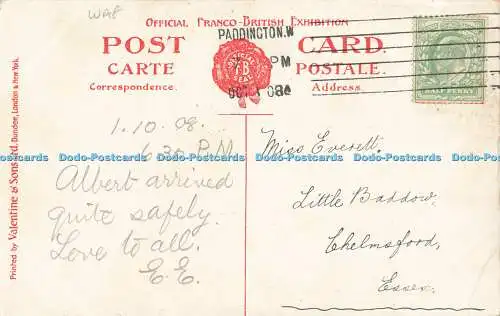 WA8
OFFICIAL FRANCO-BRITISH EXHIBITION
POST CARD.
CARTE POSTALE.
Correspondence. Address.
PADDINGTON.W
PM
OCT 1 08
HALF PENNY
Printed by Valentine & Sons Ltd. Dundee, London & New York.
1.10.08.
6.30 P.M.
Albert arrived
quite safely.
Love to all.
E.E.
Miss Everett.
Little Baddow,
Chelmsford,
Essex.
Dodo-Postcards Dodo-Postcards Dodo-Postcards Dodo-Postcards Dodo-Postcards Dodo-Postcards